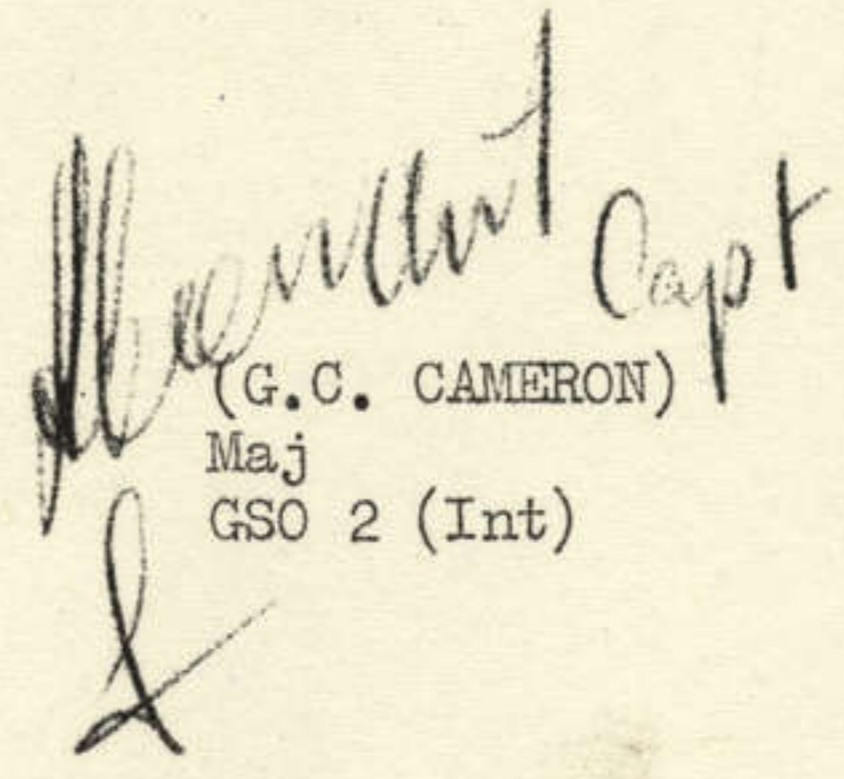 Capt
(G.C. CAMERON)
Maj
GSO 2 (Int)